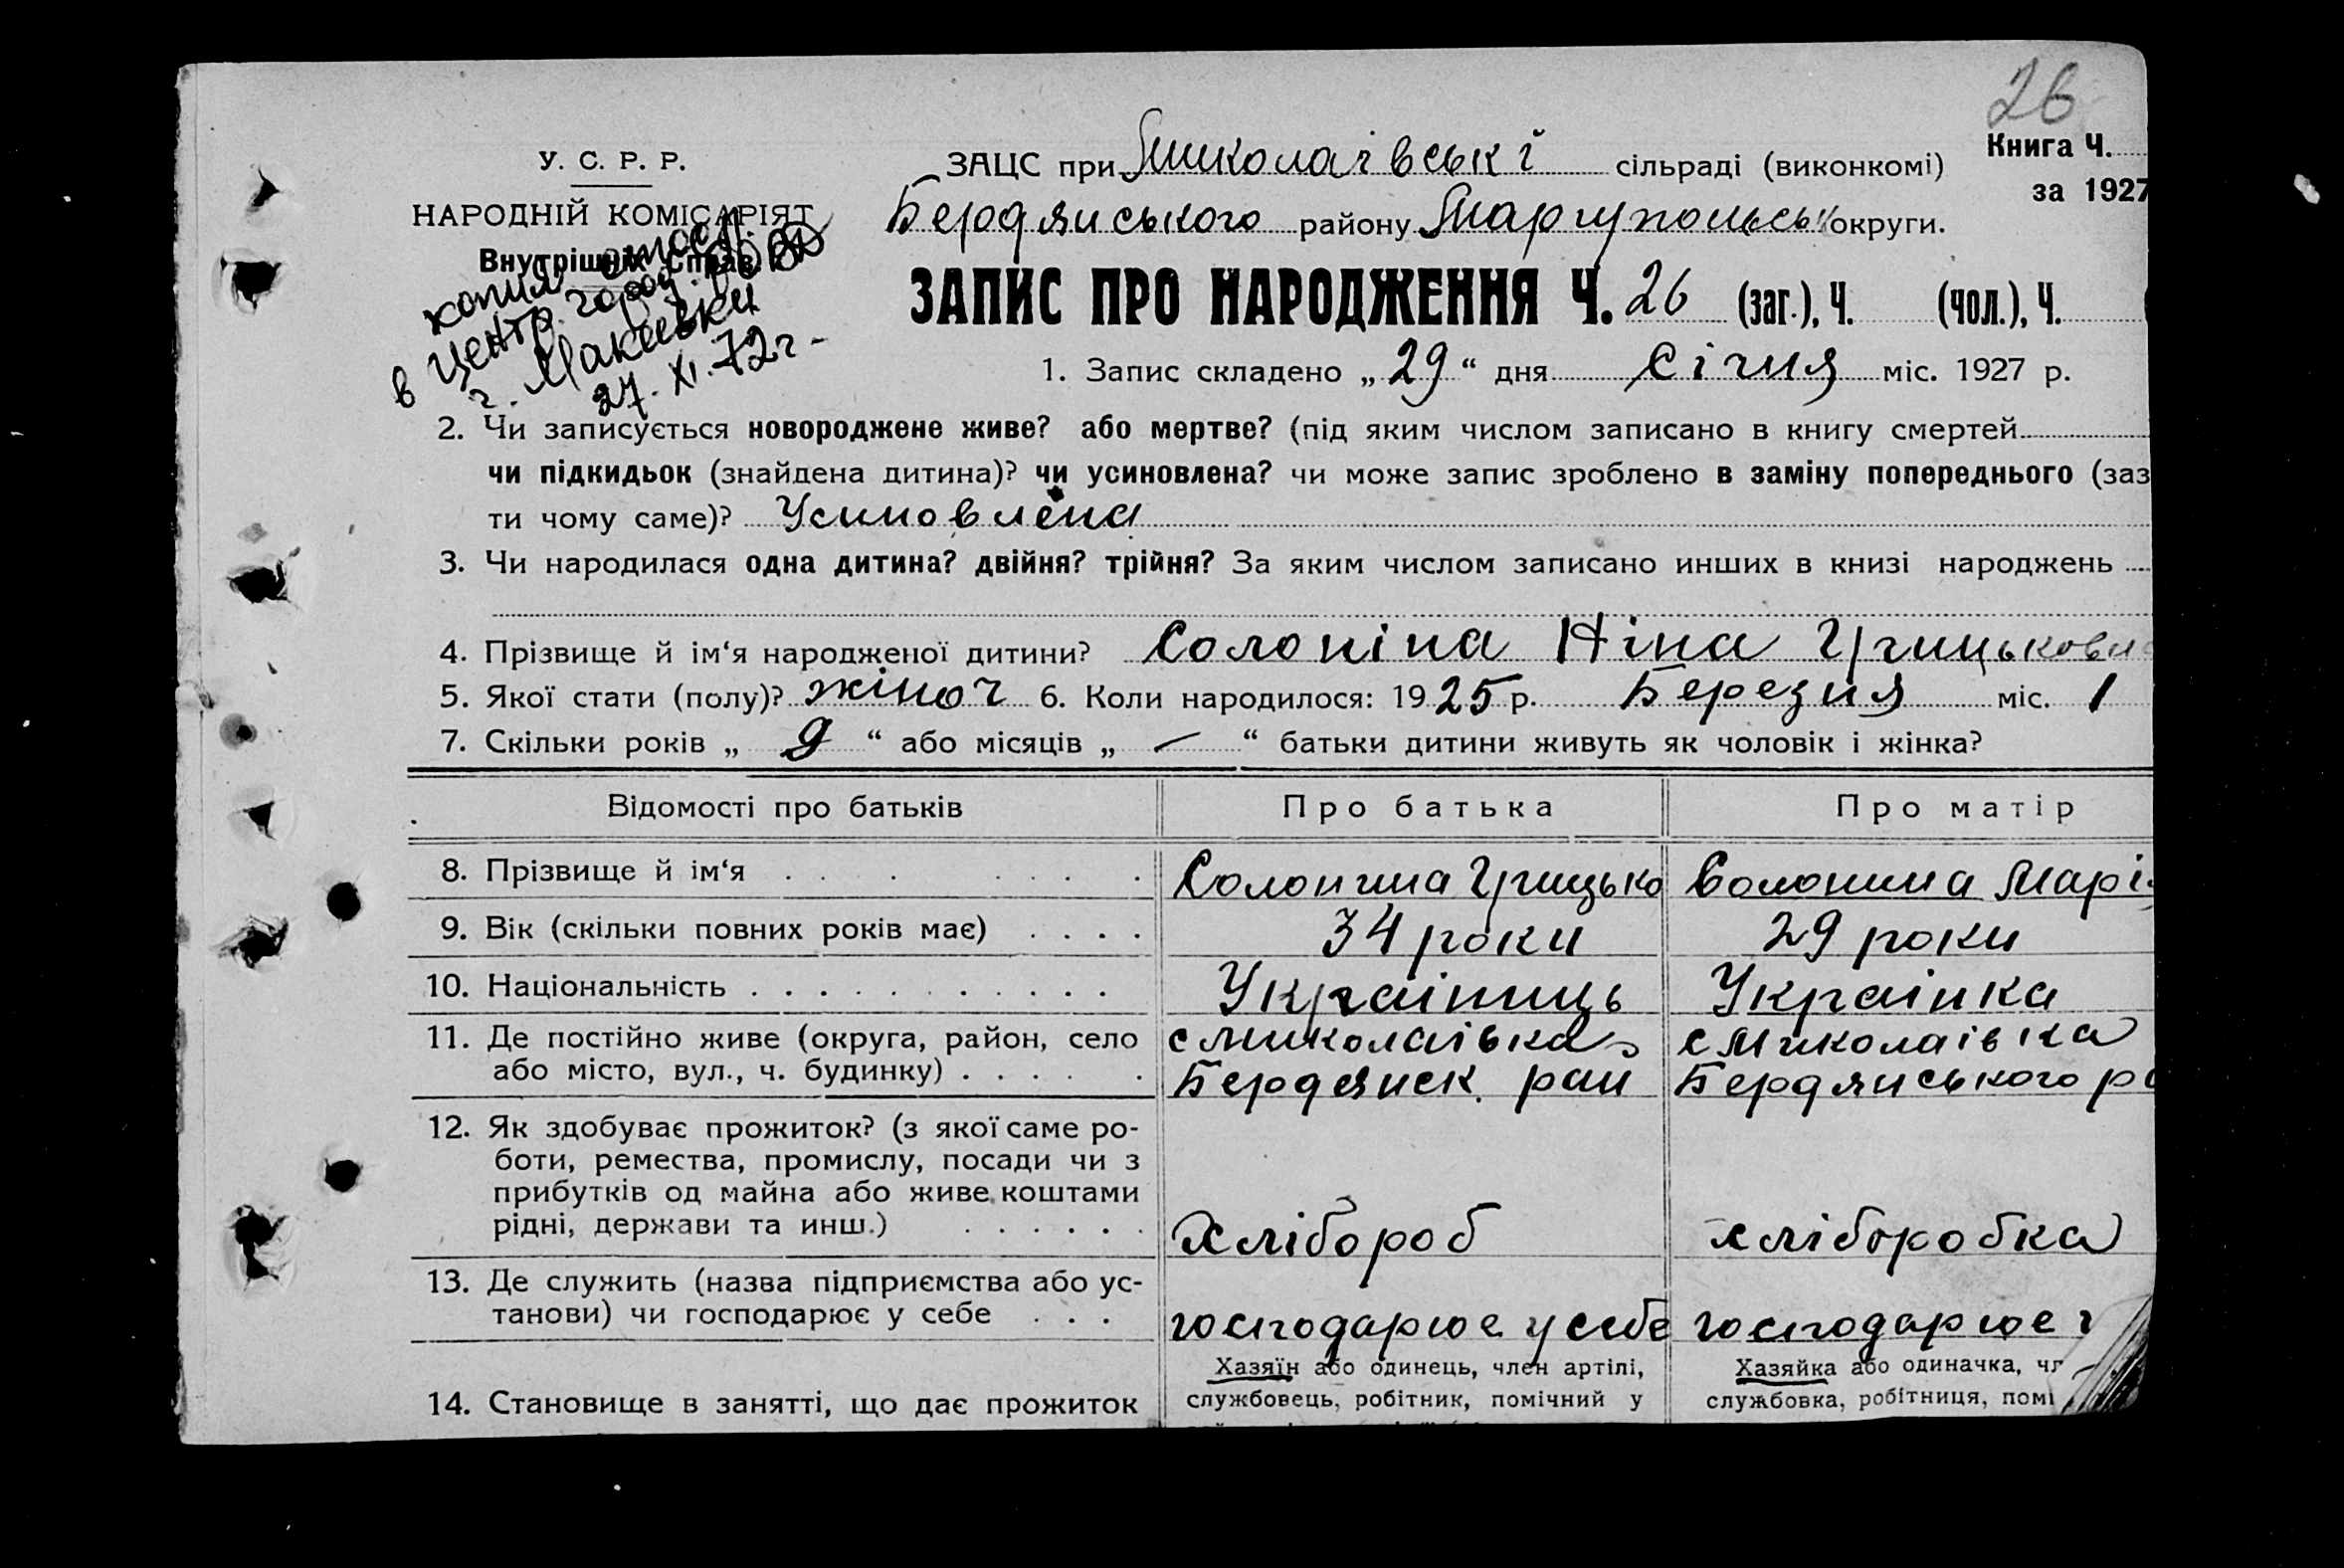 26
У. С. Р. Р.
НАРОДНІЙ КОМІСАРІЯТ
Внутрішніх Справ
копия
в центр. город.
г. Макеевки
27. XI. 72 г-
ЗАЦС при Миколаівські сільраді (виконкомі)
Книга Ч.
за 1927
Бердянського району Маріупольськ округи.
ЗАПИС ПРО НАРОДЖЕННЯ Ч. 26 (заг.), Ч. (чол.), Ч.
1. Запис складено „ 29 “ дня Січня міс. 1927 р.
2. Чи записується новороджене живе? або мертве? (під яким числом записано в книгу смертей
чи підкидьок (знайдена дитина)? чи усиновлена? чи може запис зроблено в заміну попереднього (заз
ти чому саме)? Усиновлена
3. Чи народилася одна дитина? двійня? трійня? За яким числом записано инших в книзі народжень
4. Прізвище й ім‘я народженої дитини? Солопіна Ніна Грицьковна
5. Якої стати (полу)? жіноч 6. Коли народилося: 1925 р. Березня міс. 1
7. Скільки років „ 9 “ або місяців „ — “ батьки дитини живуть як чоловік і жінка?
Відомості про батьків Про батька Про матір
8. Прізвище й ім‘я Солопина Грицько Солопина Марі
9. Вік (скільки повних років має) 34 роки 29 роки
10. Національність Украіниць Украінка
11. Де постійно живе (округа, район, село с Миколаівка с Миколаівка
або місто, вул., ч. будинку) Бердянск. рай Бердянського ра
12. Як здобуває прожиток? (з якої саме ро-
боти, ремества, промислу, посади чи з
прибутків од майна або живе коштами
рідні, держави та инш.) Хлібороб хліборобка
13. Де служить (назва підприємства або ус-
танови) чи господарює у себе господарює у себе господарює
Хазяїн або одинець, член артілі, Хазяйка або одиначка, чл
14. Становище в занятті, що дає прожиток службовець, робітник, помічний у службовка, робітниця, помі